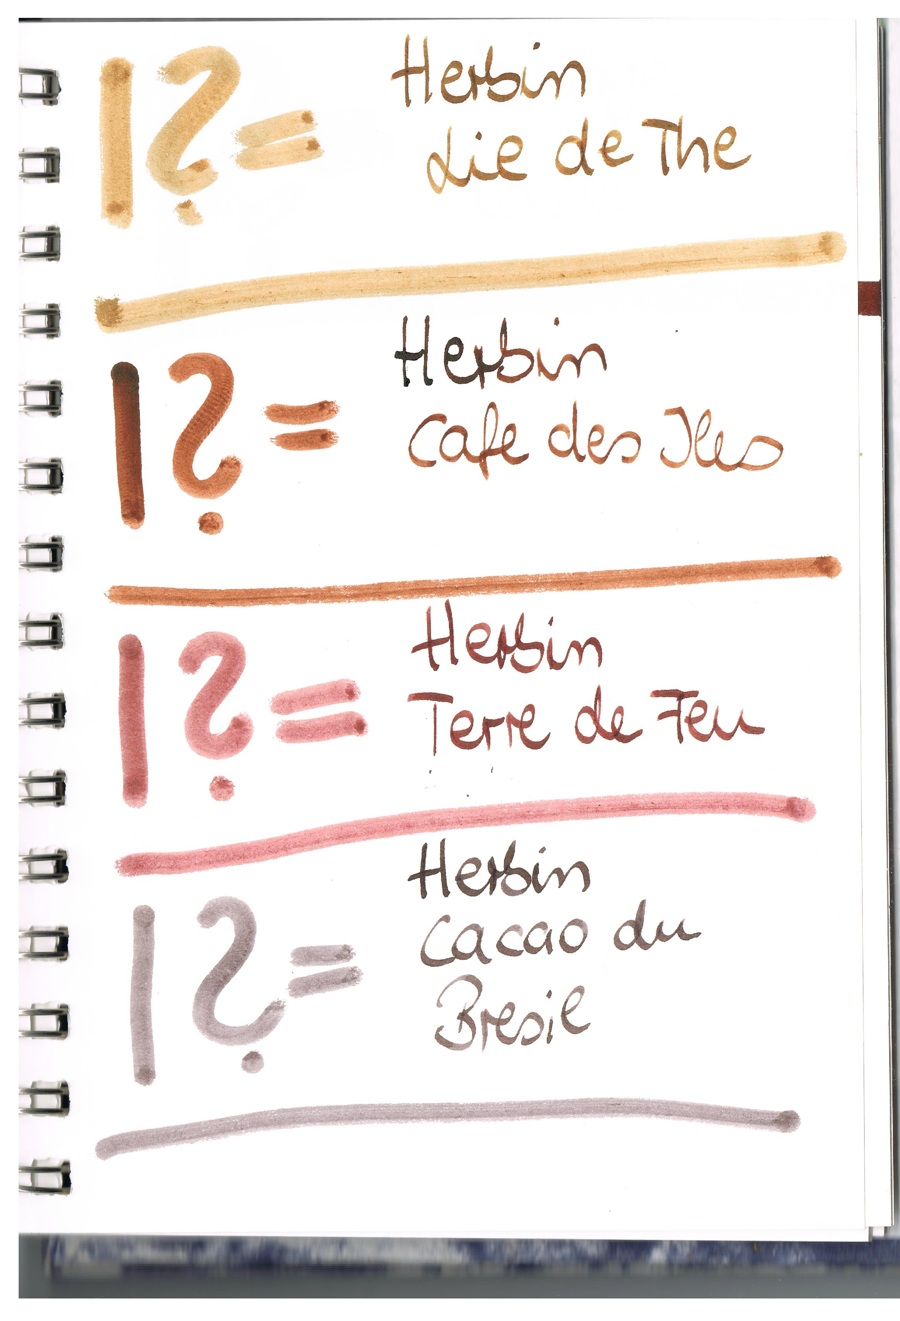 |?= Herbin
Lie de The
|?= Herbin
Cafe des Iles
|?= Herbin
Terre de Feu
|?= Herbin
Cacao du
Bresil